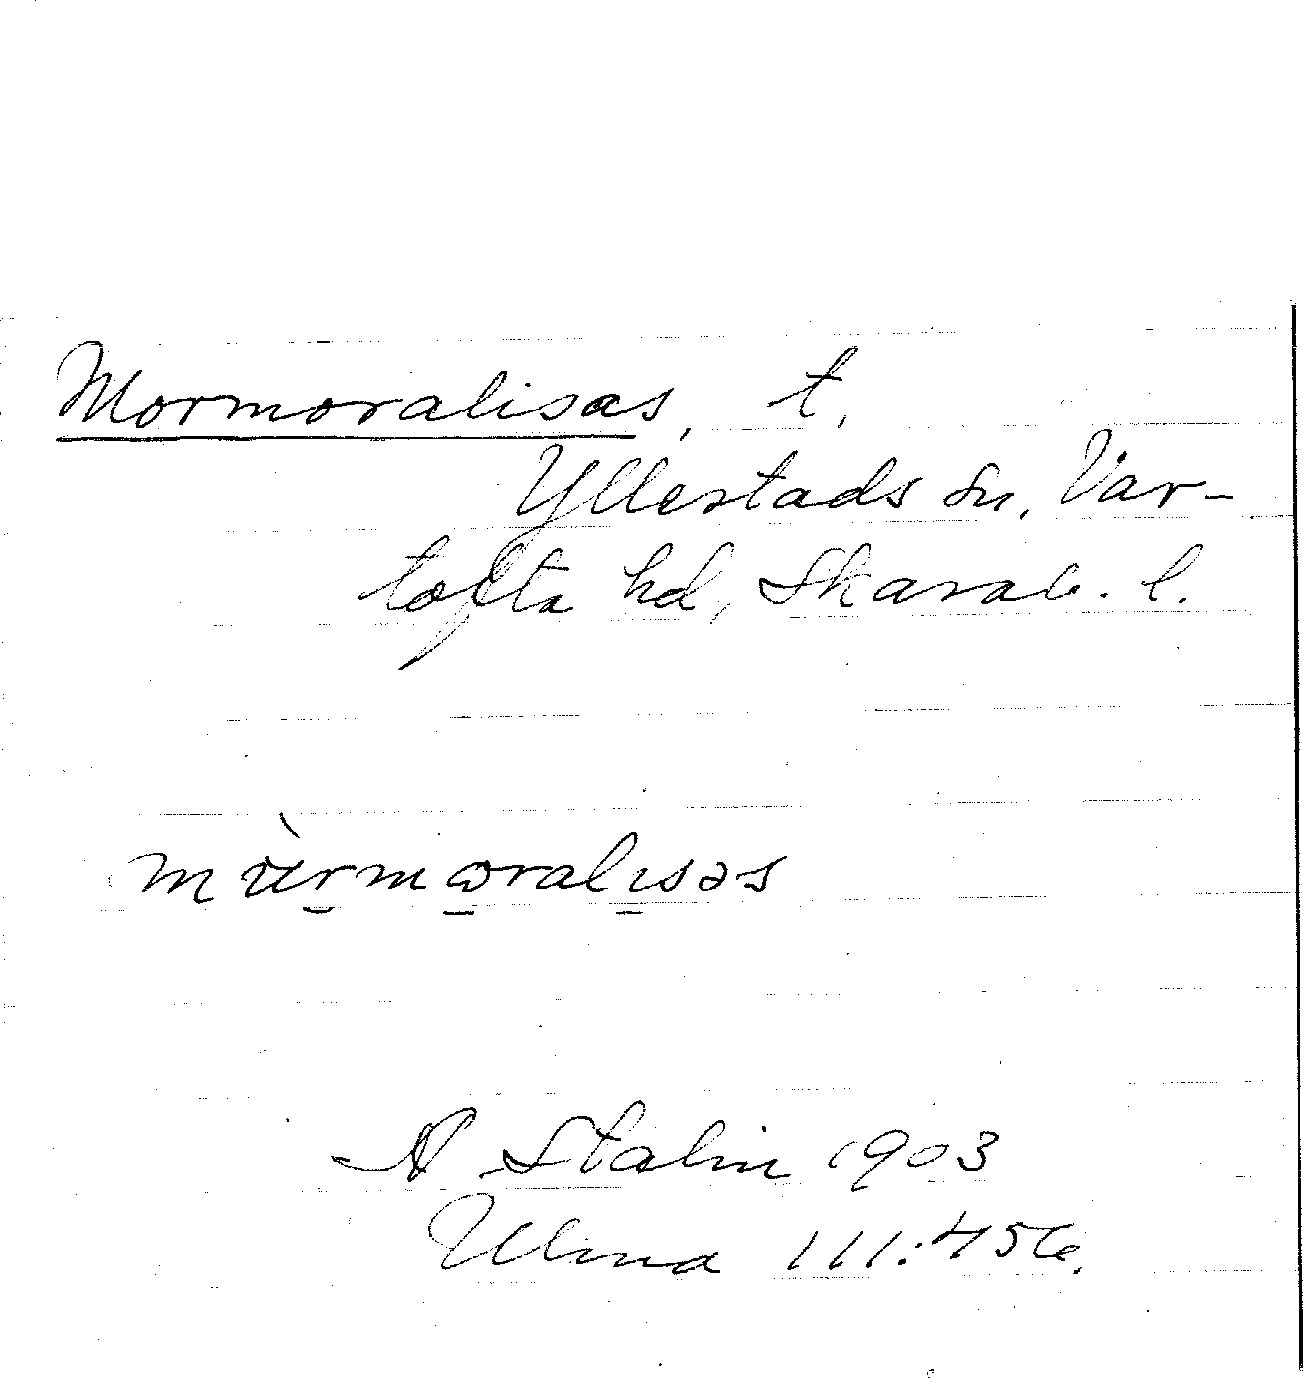 Mormoralisas, t.
Yllestads sn, Var-
tofta hd, Skarab. l.
A Stalin 1903
Ulma 111:456.